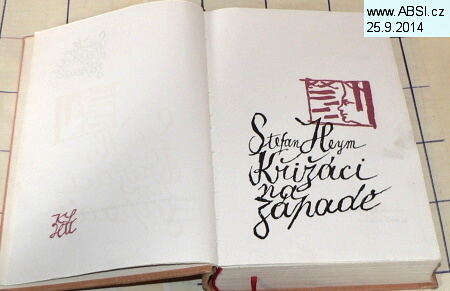 www.ABSI.cz
25.9.2014
Stefan Heym
Křižáci
na
západě